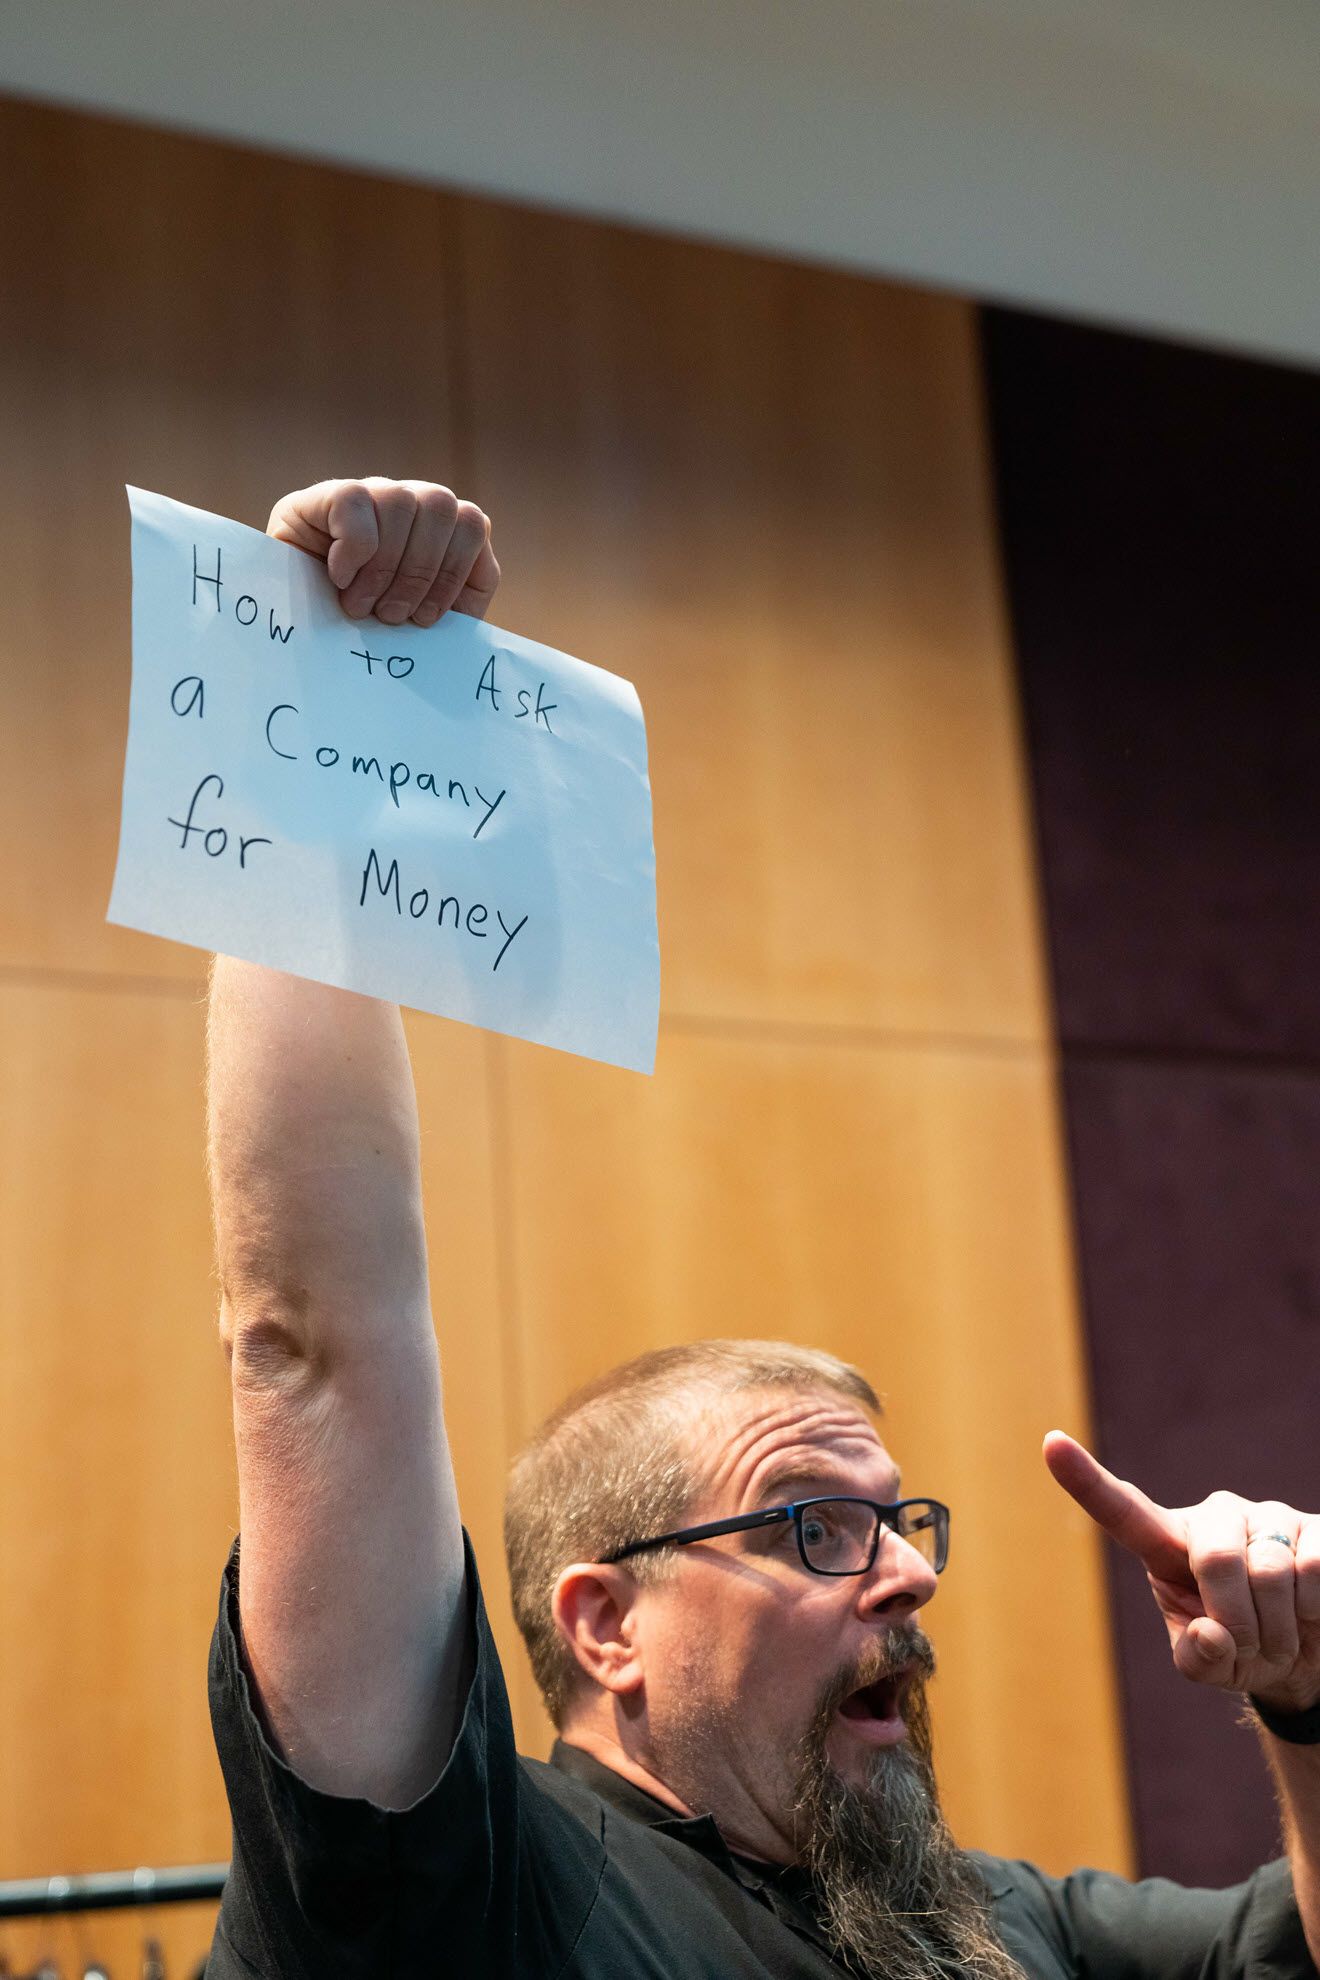 How to Ask
a Company
for Money